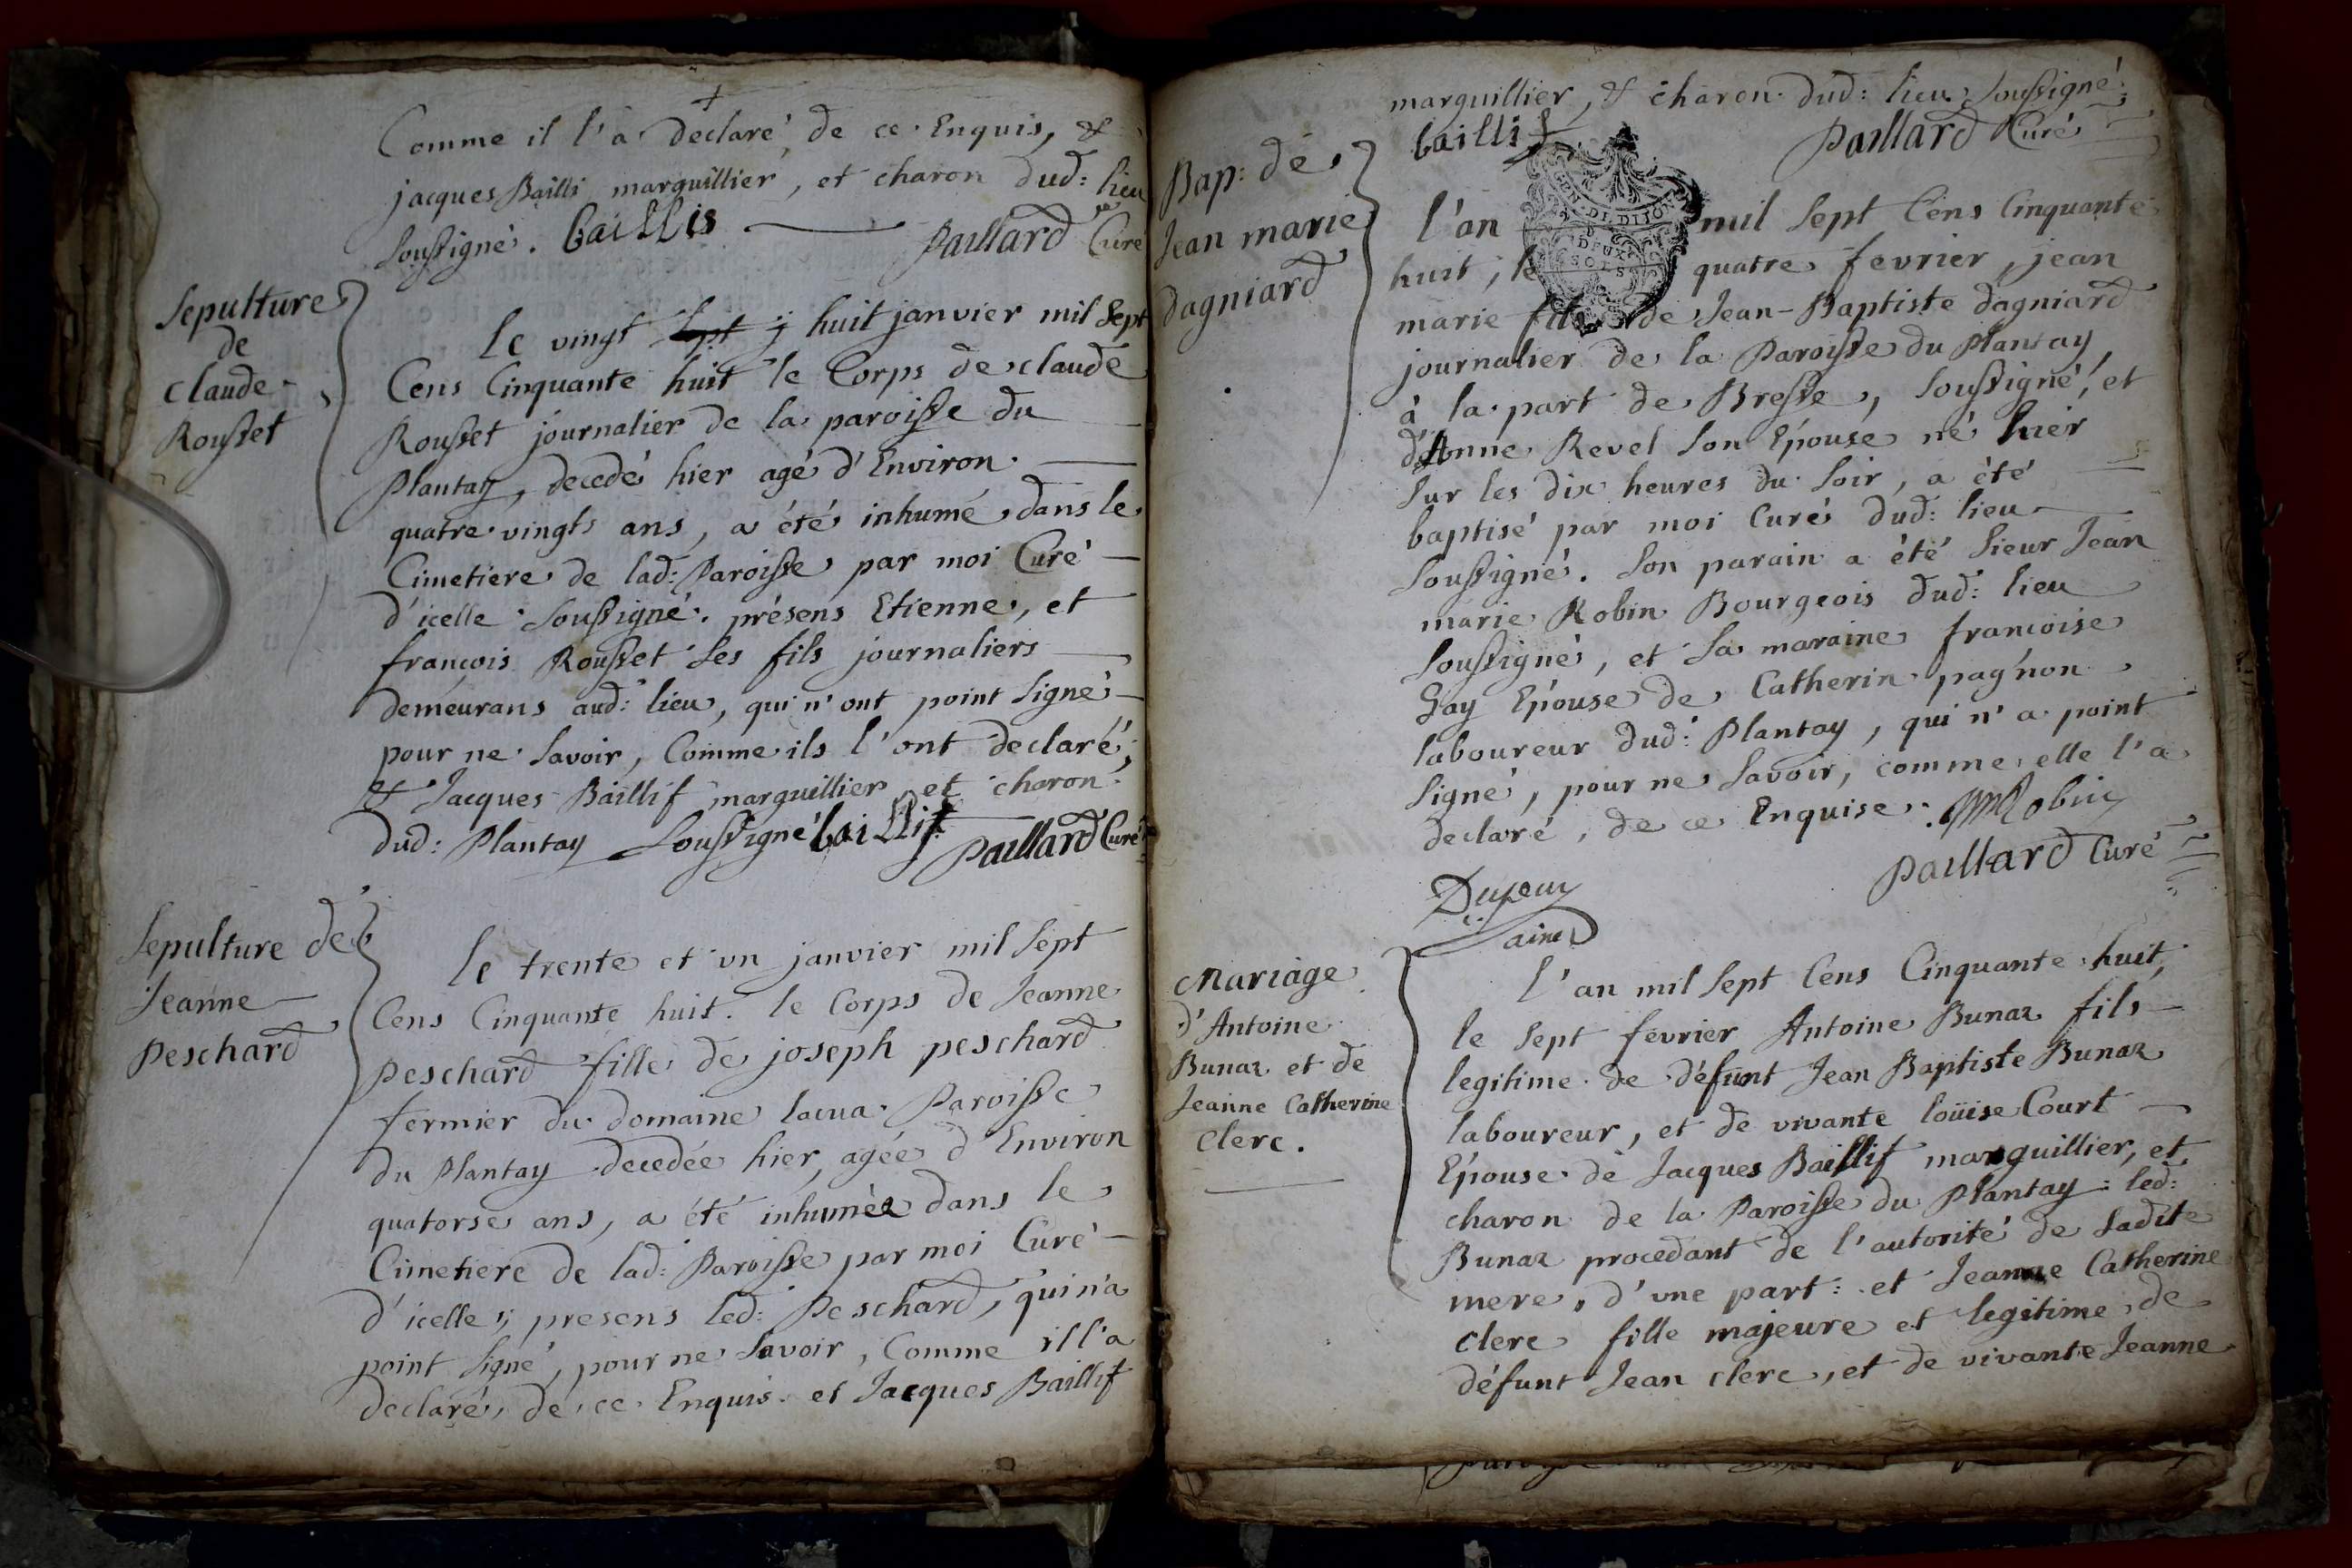 Comme il l'a declaré, de ce Enquis, &
jacques Bailli marguillier, et charon dud: lieu
soussigné. baillis Paillard Curé
Sepulture
de
claude
Rousset
le vingt huit janvier mil sept
Cens Cinquante huit le Corps de claude
Rousset journalier de la paroisse du
Plantay, decedé hier agé d'Environ
quatre vingts ans, a été inhumé dans le
Cimetiere de lad: Paroisse par moi Curé
d'icelle soussigné. présens Etienne, et
françois Rousset ses fils journaliers
demeurans aud: lieu, qui n'ont point signé
pour ne savoir, Comme ils l'ont declaré,
& Jacques Baillif marguillier et charon
dud: Plantay soussigné baillif Paillard Curé
Sepulture de
Jeanne
Peschard
le trente et un janvier mil sept
Cens Cinquante huit. le Corps de Jeanne
Peschard fille de joseph peschard
fermier du domaine lacua Paroisse
du Plantay decedée hier, agée d'Environ
quatorse ans, a été inhumée dans le
Cimetiere de lad: Paroisse par moi Curé
d'icelle; presens led: Peschard, qui n'a
point signé, pour ne savoir, Comme il l'a
declaré, de ce Enquis. et Jacques Baillif
marguillier, & charon dud: lieu soussigné
baillif Paillard Curé
Bap: de
Jean marie
dagniard
GEN. DE DIJON
DEUX
SOLS
l'an mil sept Cens Cinquante
huit, le quatre fevrier, jean
marie fils de Jean-Baptiste dagniard
journalier de la Paroisse du Plantay,
à la part de Bresse, soussigné, et
d'Anne Revel son Epouse né hier
sur les dix heures du soir, a été
baptisé par moi Curé dud: lieu
soussigné. son parain a été sieur Jean
marie Robin Bourgeois dud: lieu
soussigné, et sa maraine francoise
Gay Epouse de Catherin pagnon
laboureur dud: Plantay, qui n'a point
signé, pour ne savoir, comme elle l'a
declaré, de ce Enquise. Robin
Paillard Curé
ainé
Mariage
d'Antoine
Bunaz et de
Jeanne Catherine
Clerc.
l'an mil sept Cens Cinquante huit,
le sept fevrier Antoine Bunaz fils
legitime de défunt Jean Baptiste Bunaz
laboureur, et de vivante loüise Court
Epouse de Jacques Baillif marguillier, et
charon de la Paroisse du Plantay: led:
Bunaz procedant de l'autorité de sadite
mere, d'une part: et Jeanne Catherine
clerc fille majeure et legitime de
défunt Jean clerc, et de vivante Jeanne